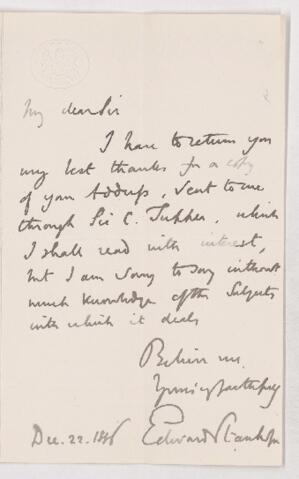 My dear Sir
I have to return you
my best thanks for a copy
of your Address, sent to me
through Sir C. Tupper, which
I shall read with interest,
but I am sorry to say without
much knowledge of the Subjects
with which it deals
Believe me
Yours faithfully
Edward Stanhope
Dec. 22. 1886